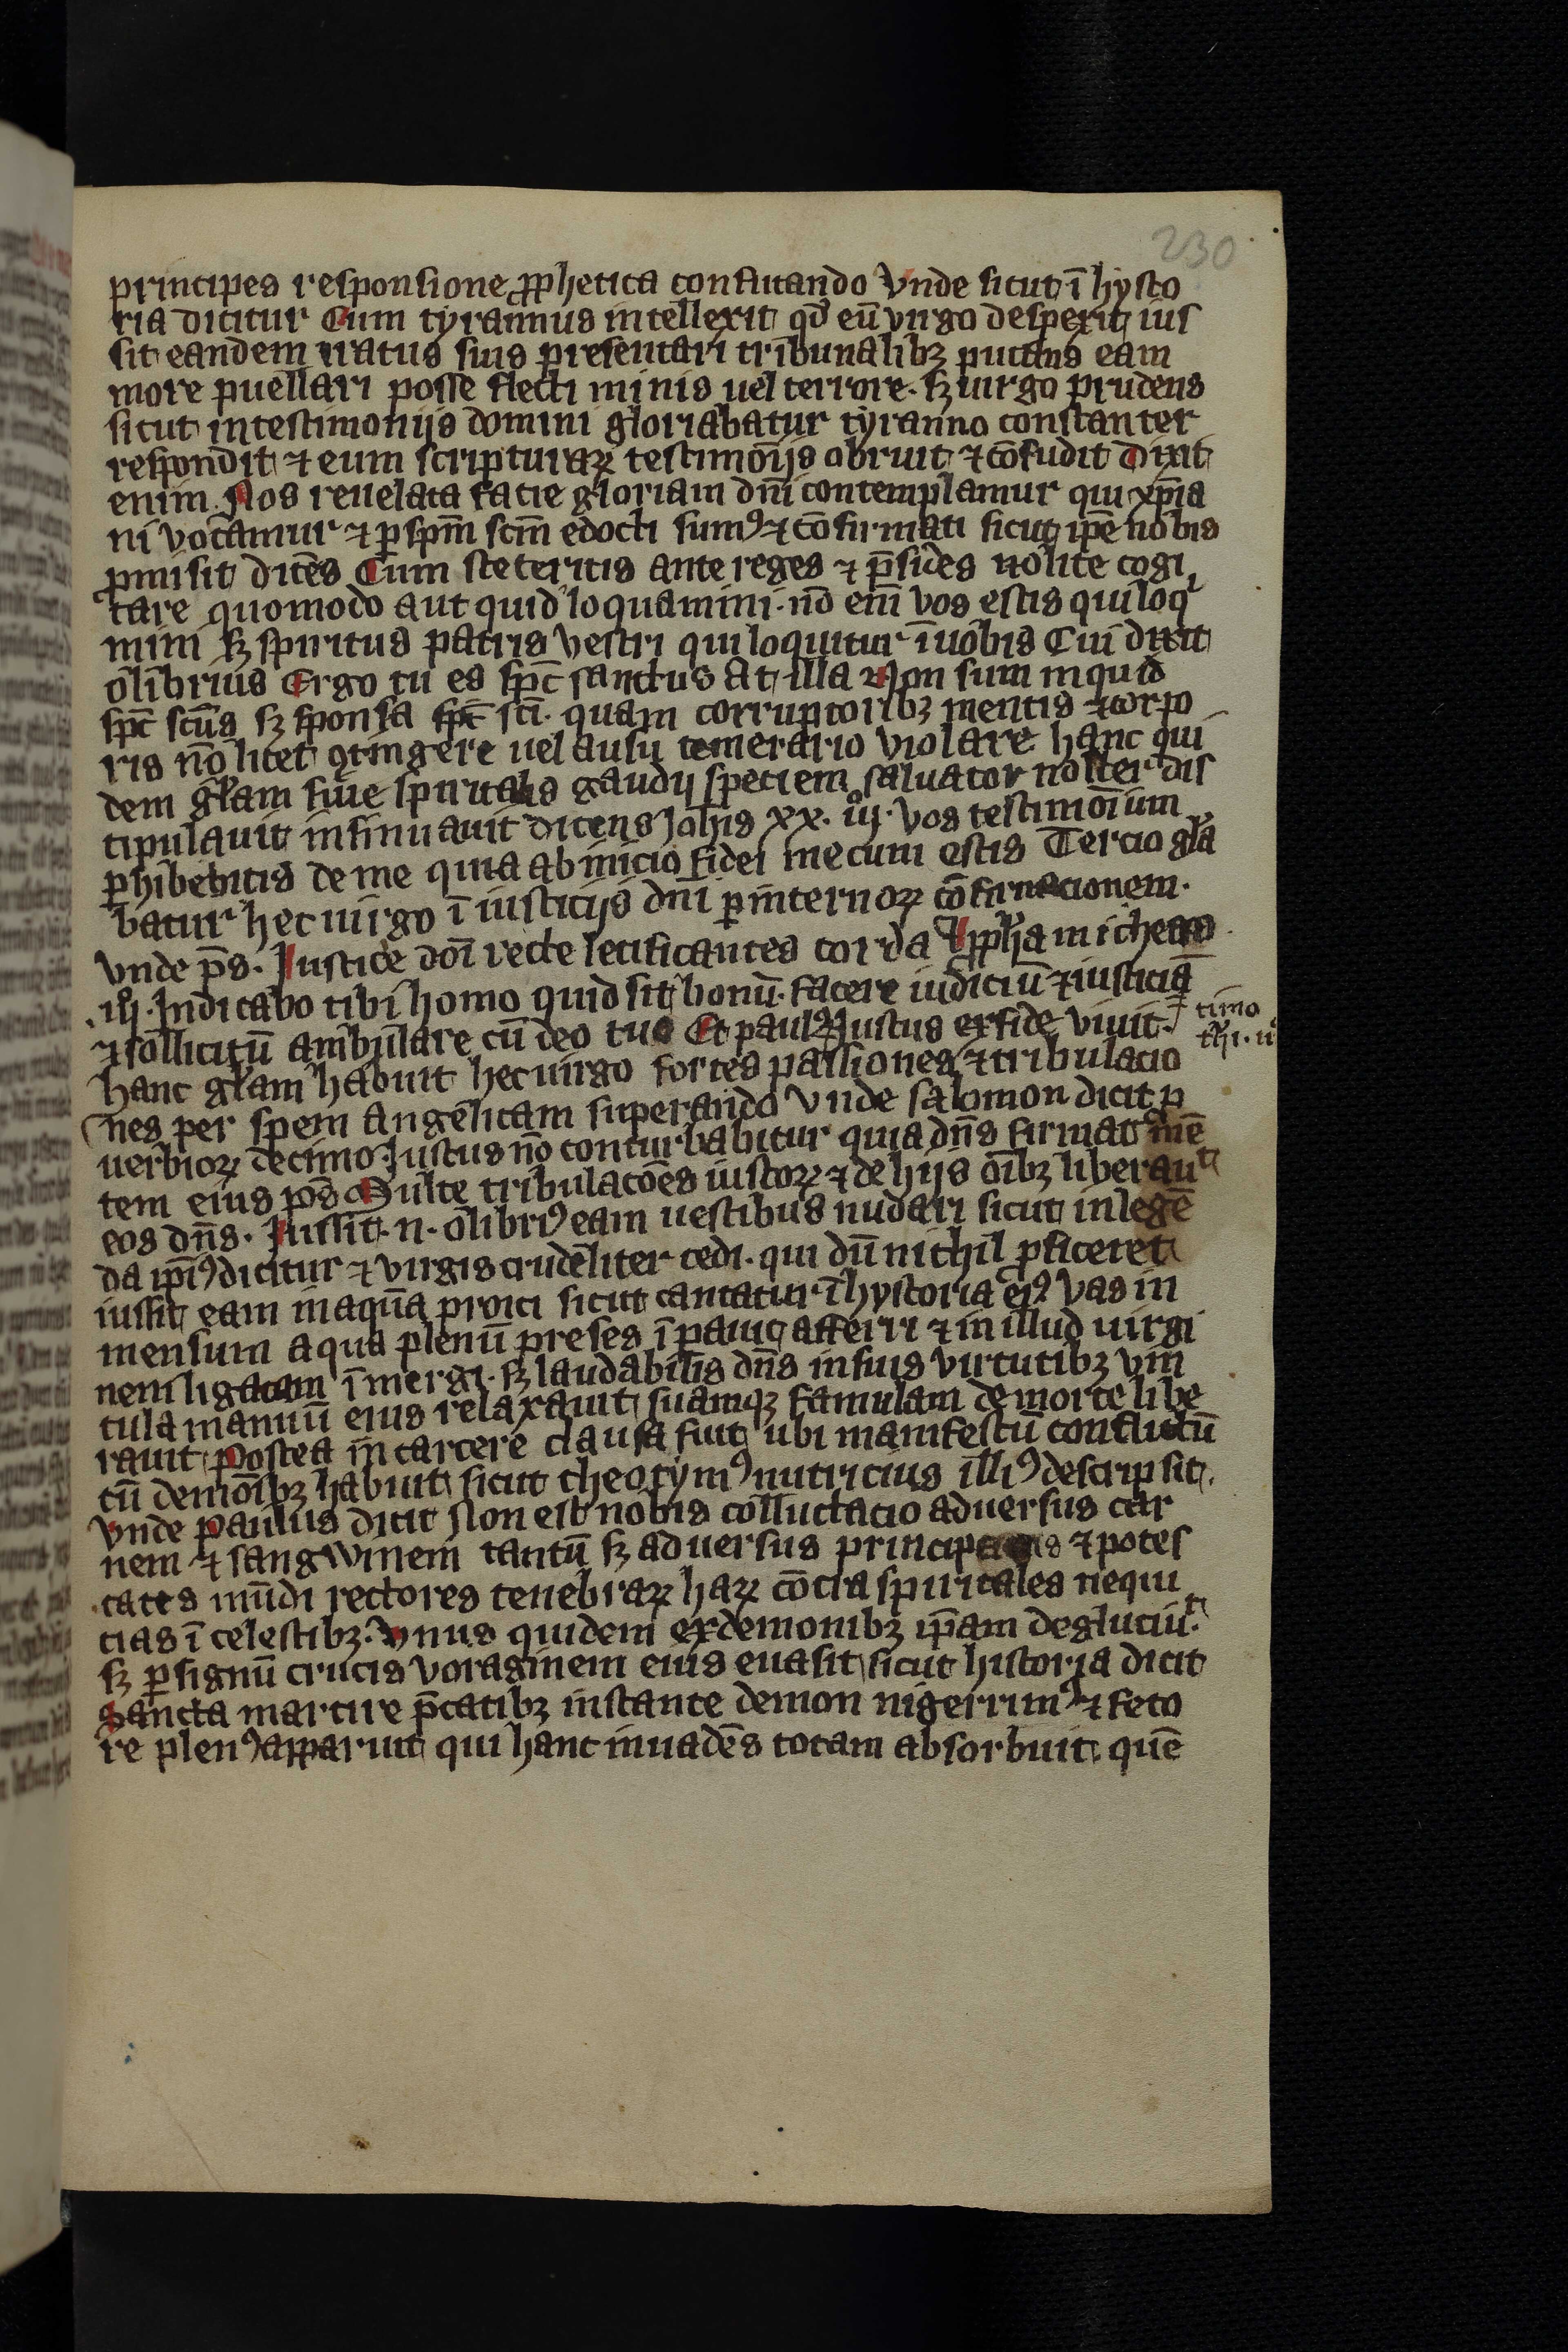 230
principes responsione ꝓphetica confutando Vnde sicut ī hysto
ria dicitur Cum tyrannus intellexit qd̄ eū virgo despexit ius
sit eandem iratus suis presentari tribunalibꝫ putans eam
more puellari posse flecti minis uel terrore. sꝫ uirgo prudens
sicut in testimonijs domini gloriabatur tyranno constanter
respondit ⁊ eum scripturaꝝ testimōijs obruit ⁊ cōfudit Dixit
enim. Nos reuelata facie gloriam dn̄i contemplamur qui xp̄ia
ni vocamur ⁊ ꝑ spm̄ scm̄ edocti sumꝰ ⁊ cōfirmati sicut ip̄e nobis
ꝓmisit dicēs Cum steteritis ante reges ⁊ p̄sides nolite cogi
tare quomodo aut quid loquamini. nō eni̅ vos estis qui loqͣ
mini sꝫ spiritus patris vestri qui loquitur ī uobis Cui dixit
olibrius Ergo tu es spc̄ sanctus At illa Non sum inquid
spc̄ scūs sꝫ sponsa spc̄ sci̅. quam corruptoribꝫ mentis ⁊ corpo
ris nō licet ꝯtingere uel ausu temerario violare hanc qui
dem gl̄am siue spiritalis gaudij speciem saluator noster dis
cipulauit insinuauit dicens Joh̄is xx. iijͦ. vos testimōium
ꝑhibebitis de me quia ab inicio fidei mecum estis Tercio gl̄a
batur hec uirgo ī iusticijs dn̄i ꝑ internoꝝ cōfirmacionem.
vnde ps̄. Justicie doi̅ recte letificantes corda Ꝓph̄a micheas
.iijͦ. Indicabo tibi homo quid sit bonū. facere iudiciū ⁊ iusticiā
⁊ sollicitū ambulare cū deo tuo Et paulꝰ Justus ex fide viuit. timo
hanc gl̄am habuit hec uirgo fortes passiones ⁊ tribulacio
nes per spem angelicam superando Vnde salomon dicit ꝓ
uerbioꝝ decimo. Justus nō conturbabitur quia dn̄s firmat mē
tem eius ps̄ Multe tribulacōes iustoꝝ ⁊ de hijs oi̅bꝫ liberauͭ
eos dn̄s. Jussit .n. olibriꝰ eam uestibus nudari sicut in legē
da ip̄iꝰ dicitur ⁊ virgis crudeliter cedi. qui dū nichil ꝓficeret
iussit eam in aquā proici sicut cantatur ī hystoria eiꝰ Vas in
mensum aqua plenū preses īpauit afferri ⁊ in illud uirgi
nem ligatam īmergi. sꝫ laudabilis dn̄s in suis virtutibꝫ vin
cula manuū eius relaxauit suamqꝫ famulam de morte libe
rauit Postea in carcere clausa fuit ubi manifestū conflictū
cū demōibꝫ habuit sicut theotymꝰ nutricius illiꝰ descripsit.
Vnde Paulus dicit Non est nobis colluctacio aduersus car
nem ⁊ sangwinem tantū sꝫ aduersus ⁊ potes
tates mūdi rectores tenebraꝝ haꝝ cōtra spiritales nequi
cias ī celestibꝫ. Vnus quidem ex demonibꝫ ip̄am degluciuͭ.
sꝫ ꝑ signū crucis voraginem eius euasit sicut historia dicit
Sancta martire p̄catibꝫ instante demon nigerrimꝰ ⁊ feto
re plenꝰ apparuit qui hanc inuadēs totam absorbuit quē